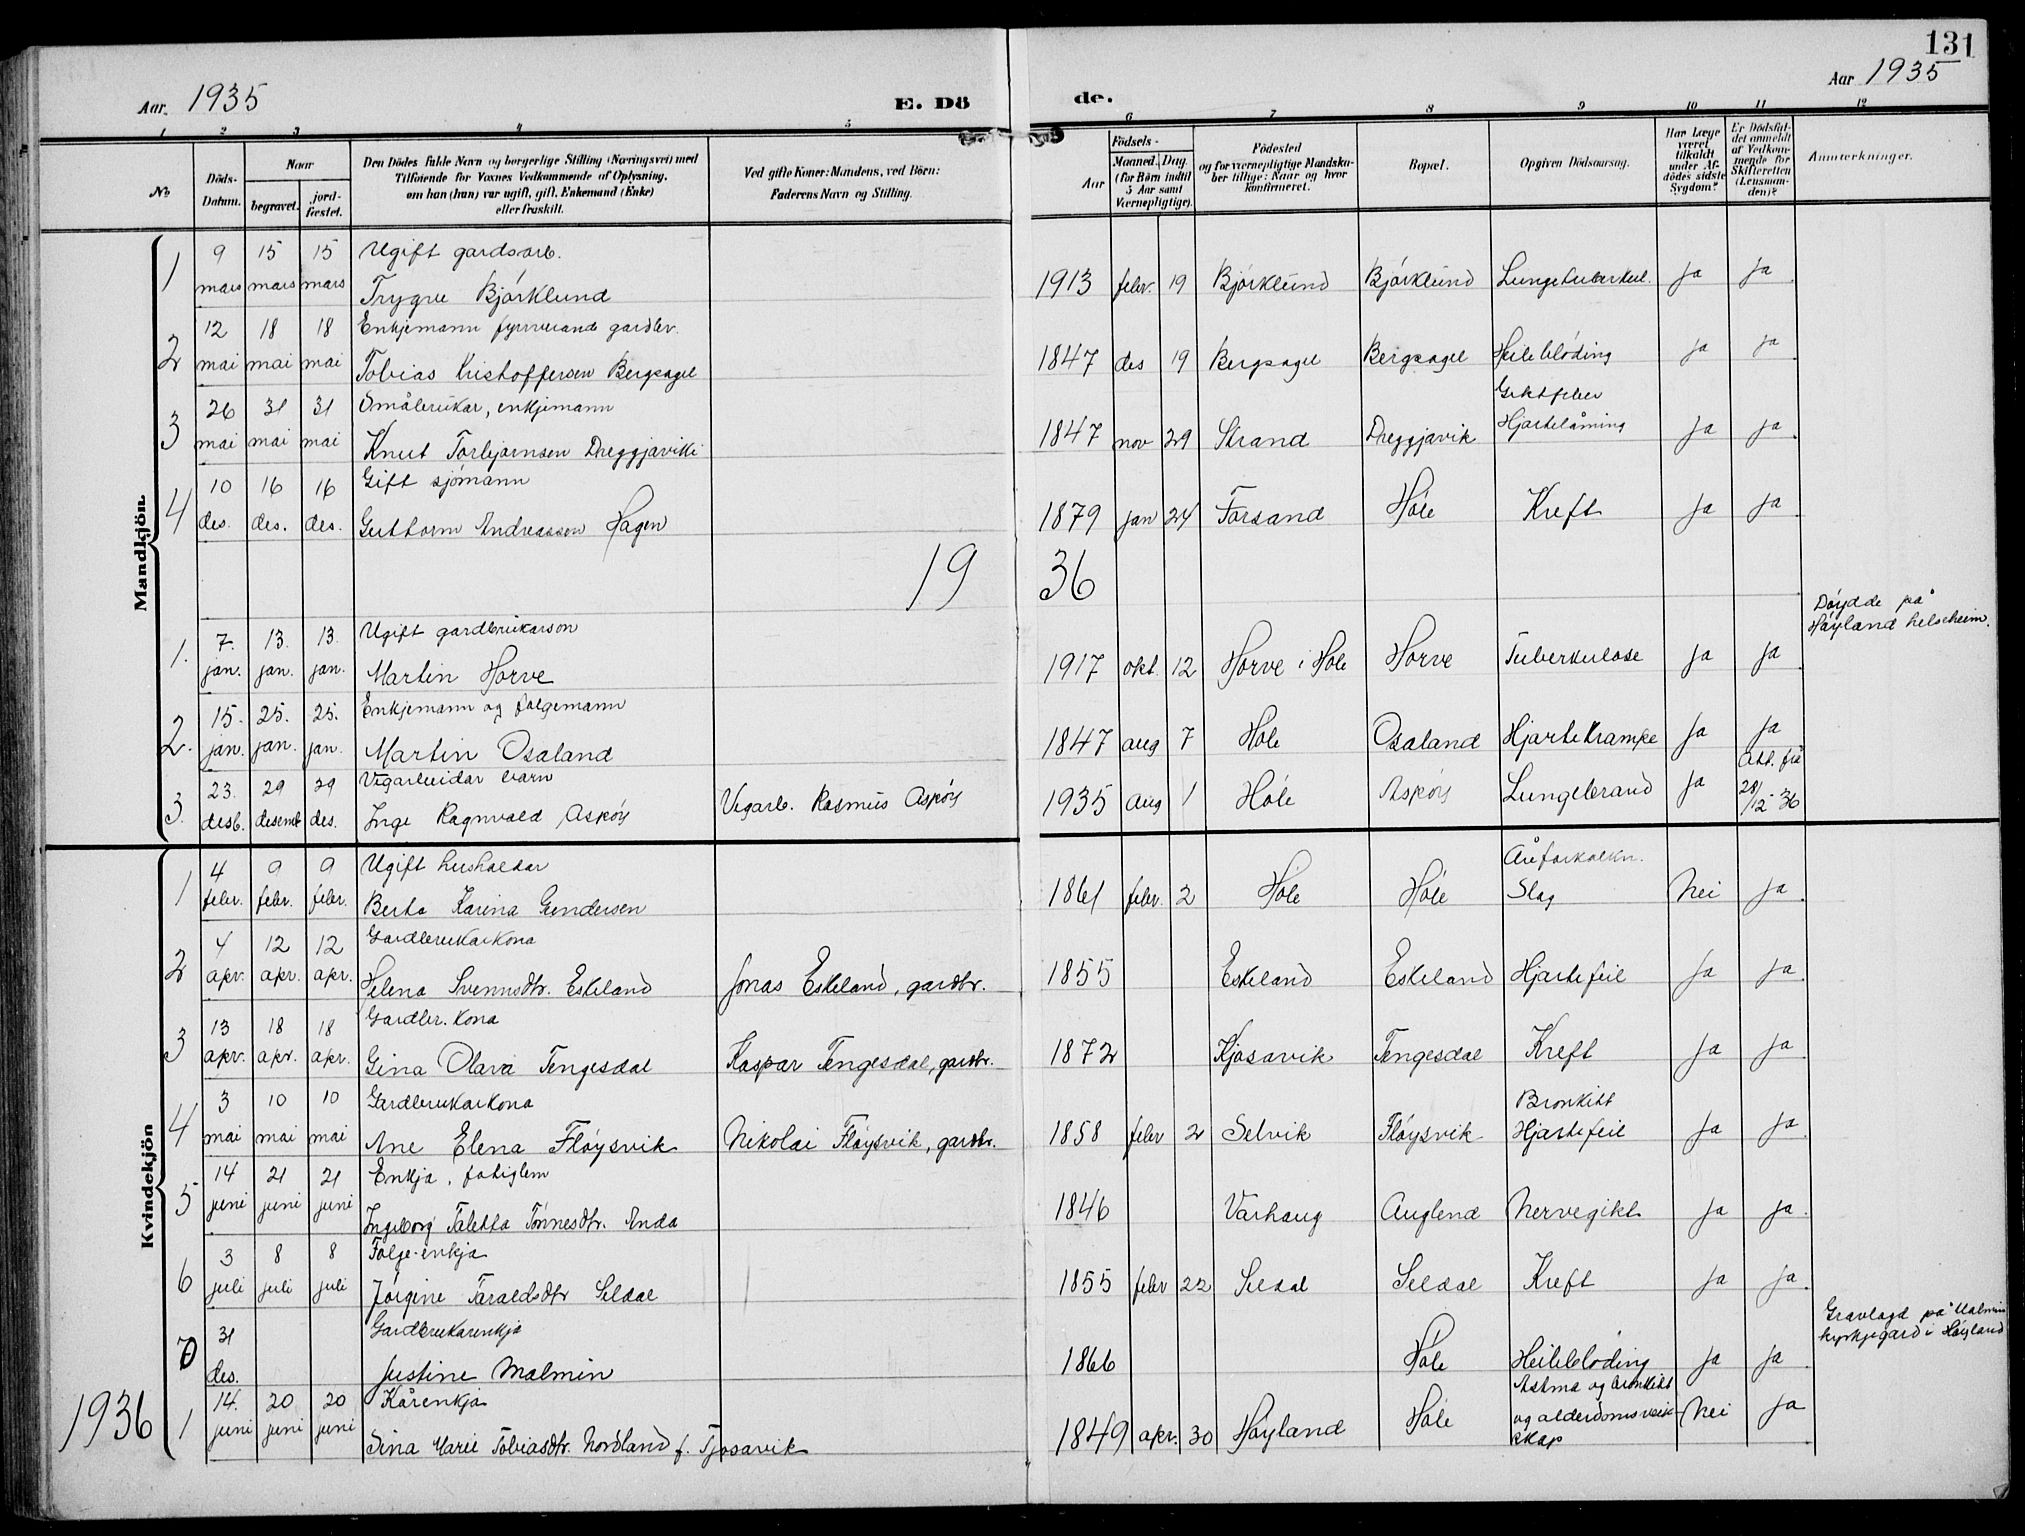 131
Aar 1935
E. Dö
de.
Aar 1935
1 2 3 4 5 6 7 8 9 10 11 12
No
Döds-Datum.
Naar
begravet.
jord-fæstet.
Den Dödes fulde Navn og borgerlige Stilling (Næringsvei) med
Tilföiende for Voxnes Vedkommende af Oplysning,
om han (hun) var ugift, gift, Enkemand (Enke)
eller fraskilt.
Ved gifte Koner: Mandens, ved Börn:
Faderens Navn og Stilling.
Födsels-
Aar
Maaned. Dag.
(for Börn indtil
5 Aar samt
Værnepligtige).
Födested
og for værnepligtige Mandska-
ber tillige: Naar og hvor
konfirmeret.
Bopæl.
Opgiven Dödsaarsag.
Har Læge
været
tilkaldt
under Af-
dödes sidste
Sygdom?
Er Dödsfal-
det anmeldt
af Vedkom-
mende for
Skifteretten
(Lensman-
den)?
Anmærkninger.
Mandkjön
1 9 mars 15 mars 15 mars Ugift gardsarb.
Trygve Bjórklund 1913 febr. 19 Bjórklund Bjórklund Lungetuberkul. ja ja
2 12 mai 18 mai 18 mai Enkjemann fyrrverande gardbr.
Tobias Kristoffersen Bergsagel 1847 des 19 Bergsagel Bergsagel Heileblóding ja ja
3 26 mai 31 mai 31 mai Småbrukar, enkjemann
Knut Torbjørnsen Dreggjavik 1847 nov 29 Strand Dreggjavik Giktfeber
Hjartelåming ja ja
4 10 des. 16 des. 16 des. Gift sjómann
Guttorm Andreassen Hagen 1879 jan 24 Forsand Hóle Kreft ja ja
19 36
1. 7. jan. 13. jan. 13. jan. Ugift gardbrukarson
Martin Horve 1917 okt. 12 Horve i Hole Horve Tuberkulose ja ja Dóydde på
Hóyland helseheim.
2. 15. jan. 25. jan. 25. jan. Enkjemann og folgemann
Martin Osaland 1847 aug 7 Hole Osaland Hjartekrampe ja ja
3. 23. desb. 29 desemb. 29 des. Vegarbeidar barn
Inge Ragnvald Aspóy Vegarb. Rasmus Aspóy 1935 aug 1 Hóle Aspóy Lungebrand ja Att. frå
28/12-36
Kvindekjön
1 4 febr. 9 febr. 9 febr. Ugift hushaldar
Berta Karina Gundersen 1861 febr. 2 Hole Hóle Åreforkalkn.
Slag Nei ja
2 4 apr. 12 apr. 12 apr. Gardbrukarkona
Helena Svennsdtr. Eskeland Jonas Eskeland, gardbr. 1855 Eskeland Eskeland Hjartefeil ja ja
3 13 apr. 18 apr. 18 apr. Gardbr. kona
Gina Olava Tengesdal Kaspar Tengesdal, gardbr. 1872 Kjosavik Tengesdal Kreft ja ja
4 3 mai 10 mai 10 mai Gardbrukarkona
Ane Elena Flóysvik Nikolai Flóysvik, gardbr. 1858 febr 2 Selvik Flóysvik Bronkitt
Hjartefeil ja ja
5 14 juni 21 juni 21 juni Enkja, fatiglem
Ingeborg Taletta Tónnesdtr. Anda 1846 Varhaug Auglend Nervegikt ja ja
6 3 juli 8 juli 8 juli Folge-enkja
Jórgine Taraldsdtr Seldal 1855 febr 22 Seldal Seldal Kreft ja ja
7 31 des. Gardbrukarenkja
Justine Malmin 1866 Hóle Heileblóding ja ja Gravlagd på Malmin
kyrkjegard i Hóyland
1936 1 14. juni 20 juni 20 juni Kårenkja
Sina Marie Tobiasdtr. Nordland f. Tjosavik 1849 apr. 30 Hóyland Hóle Astma og bronkitt
og alderdomsveik-
skap Nei ja